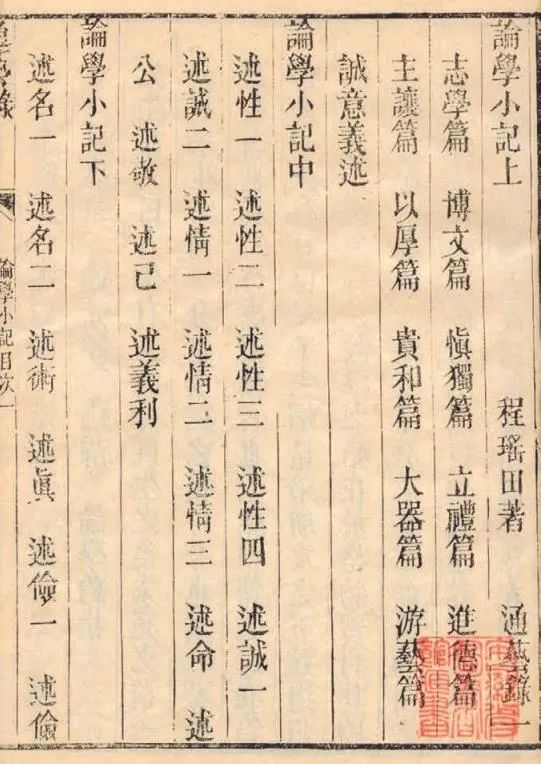 論學小記上 程瑤田著 通藝錄一
志學篇 博文篇 慎獨篇 立禮篇 進德篇
主讓篇 以厚篇 貴和篇 大器篇 游藝篇
誠意義述
論學小記中
述性一 述性二 述性三 述性四 述誠一
述誠二 述情一 述情二 述情三 述命 述
公 述敬 述己 述義利
論學小記下
述名一 述名二 述術 述眞 述儉一 述儉
論學小記目次一